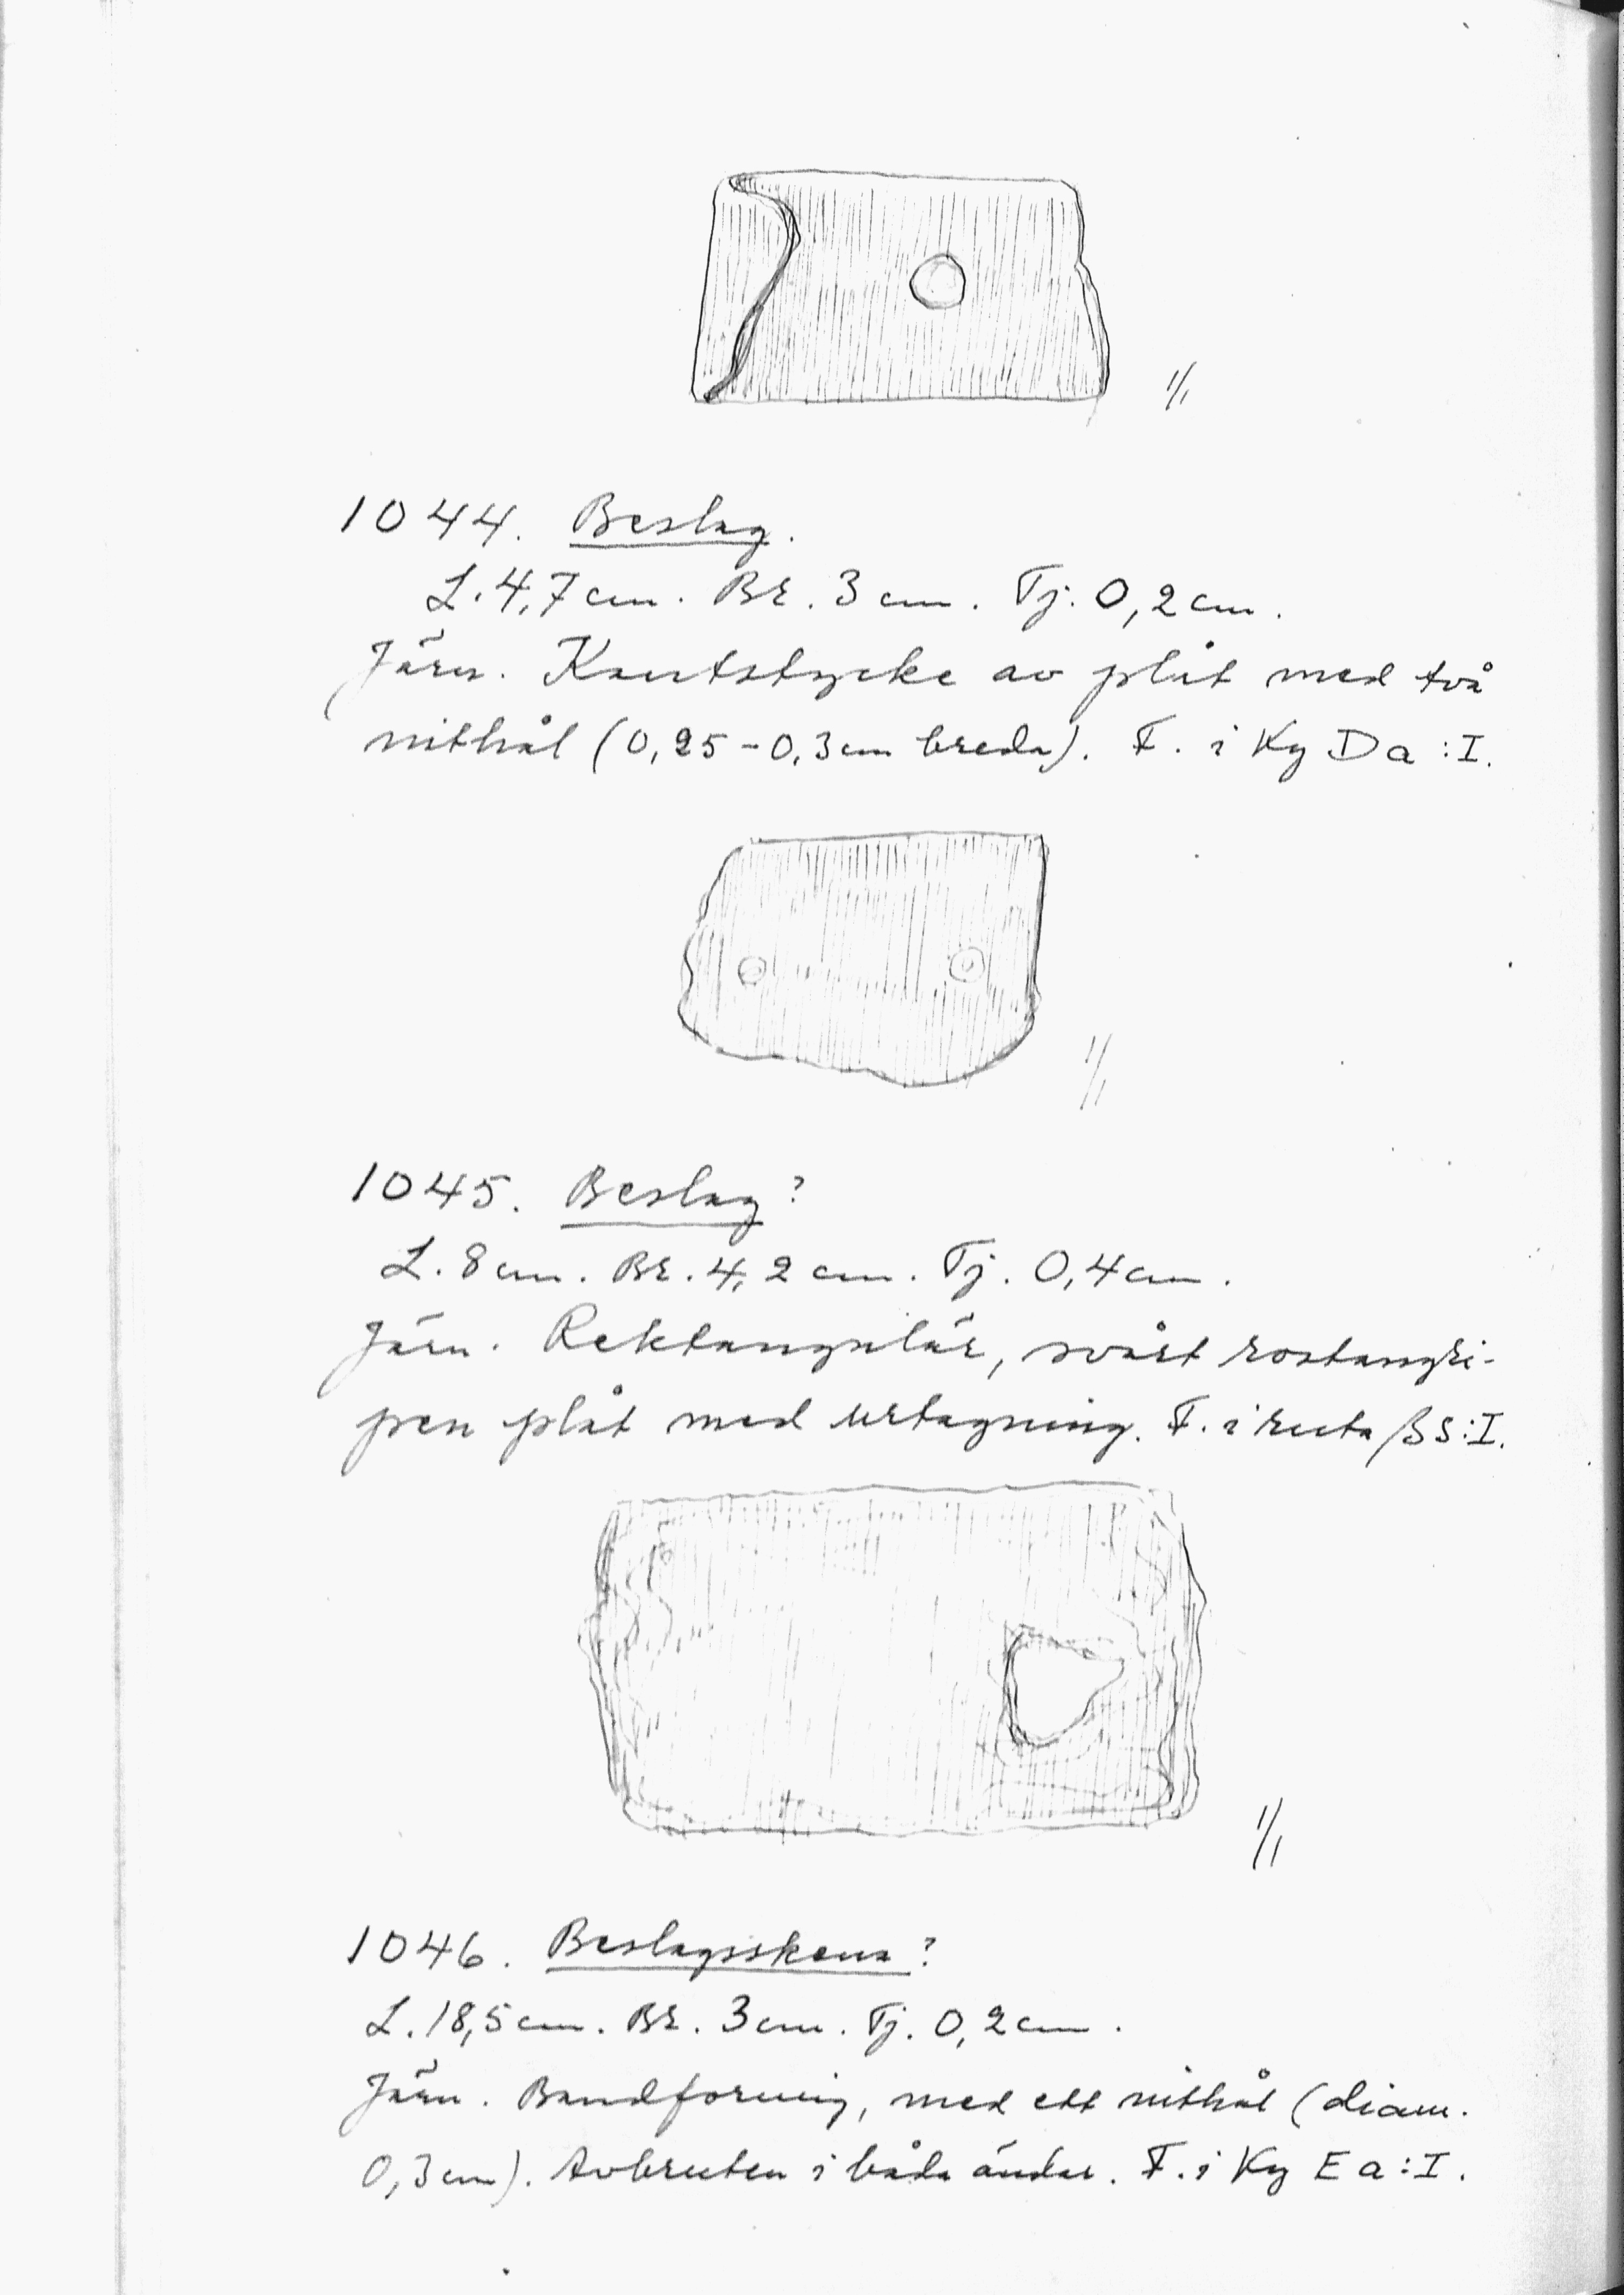 1/1
1044. Beslag.
L. 4,7 cm. Br. 3 cm. Tj. 0,2 cm.
Järn. Kantstycke av plåt med två
nithål (0,25-0,3 cm breda). F. i Ky Da:I.
1/1
1045. Beslag?
L. 8 cm. Br. 4,2 cm. Tj. 0,4 cm.
Järn. Rektangulär, svårt rostangri-
pen plåt med urtagning. F. i ruta ßs:I.
1/1
1046. Beslagsskena?
L. 18,5 cm. Br. 3 cm. Tj. 0,2 cm.
Järn. Bandformig, med ett nithål (diam.
0,3 cm). Avbruten i båda ändar. F. i Ky Ea:I.